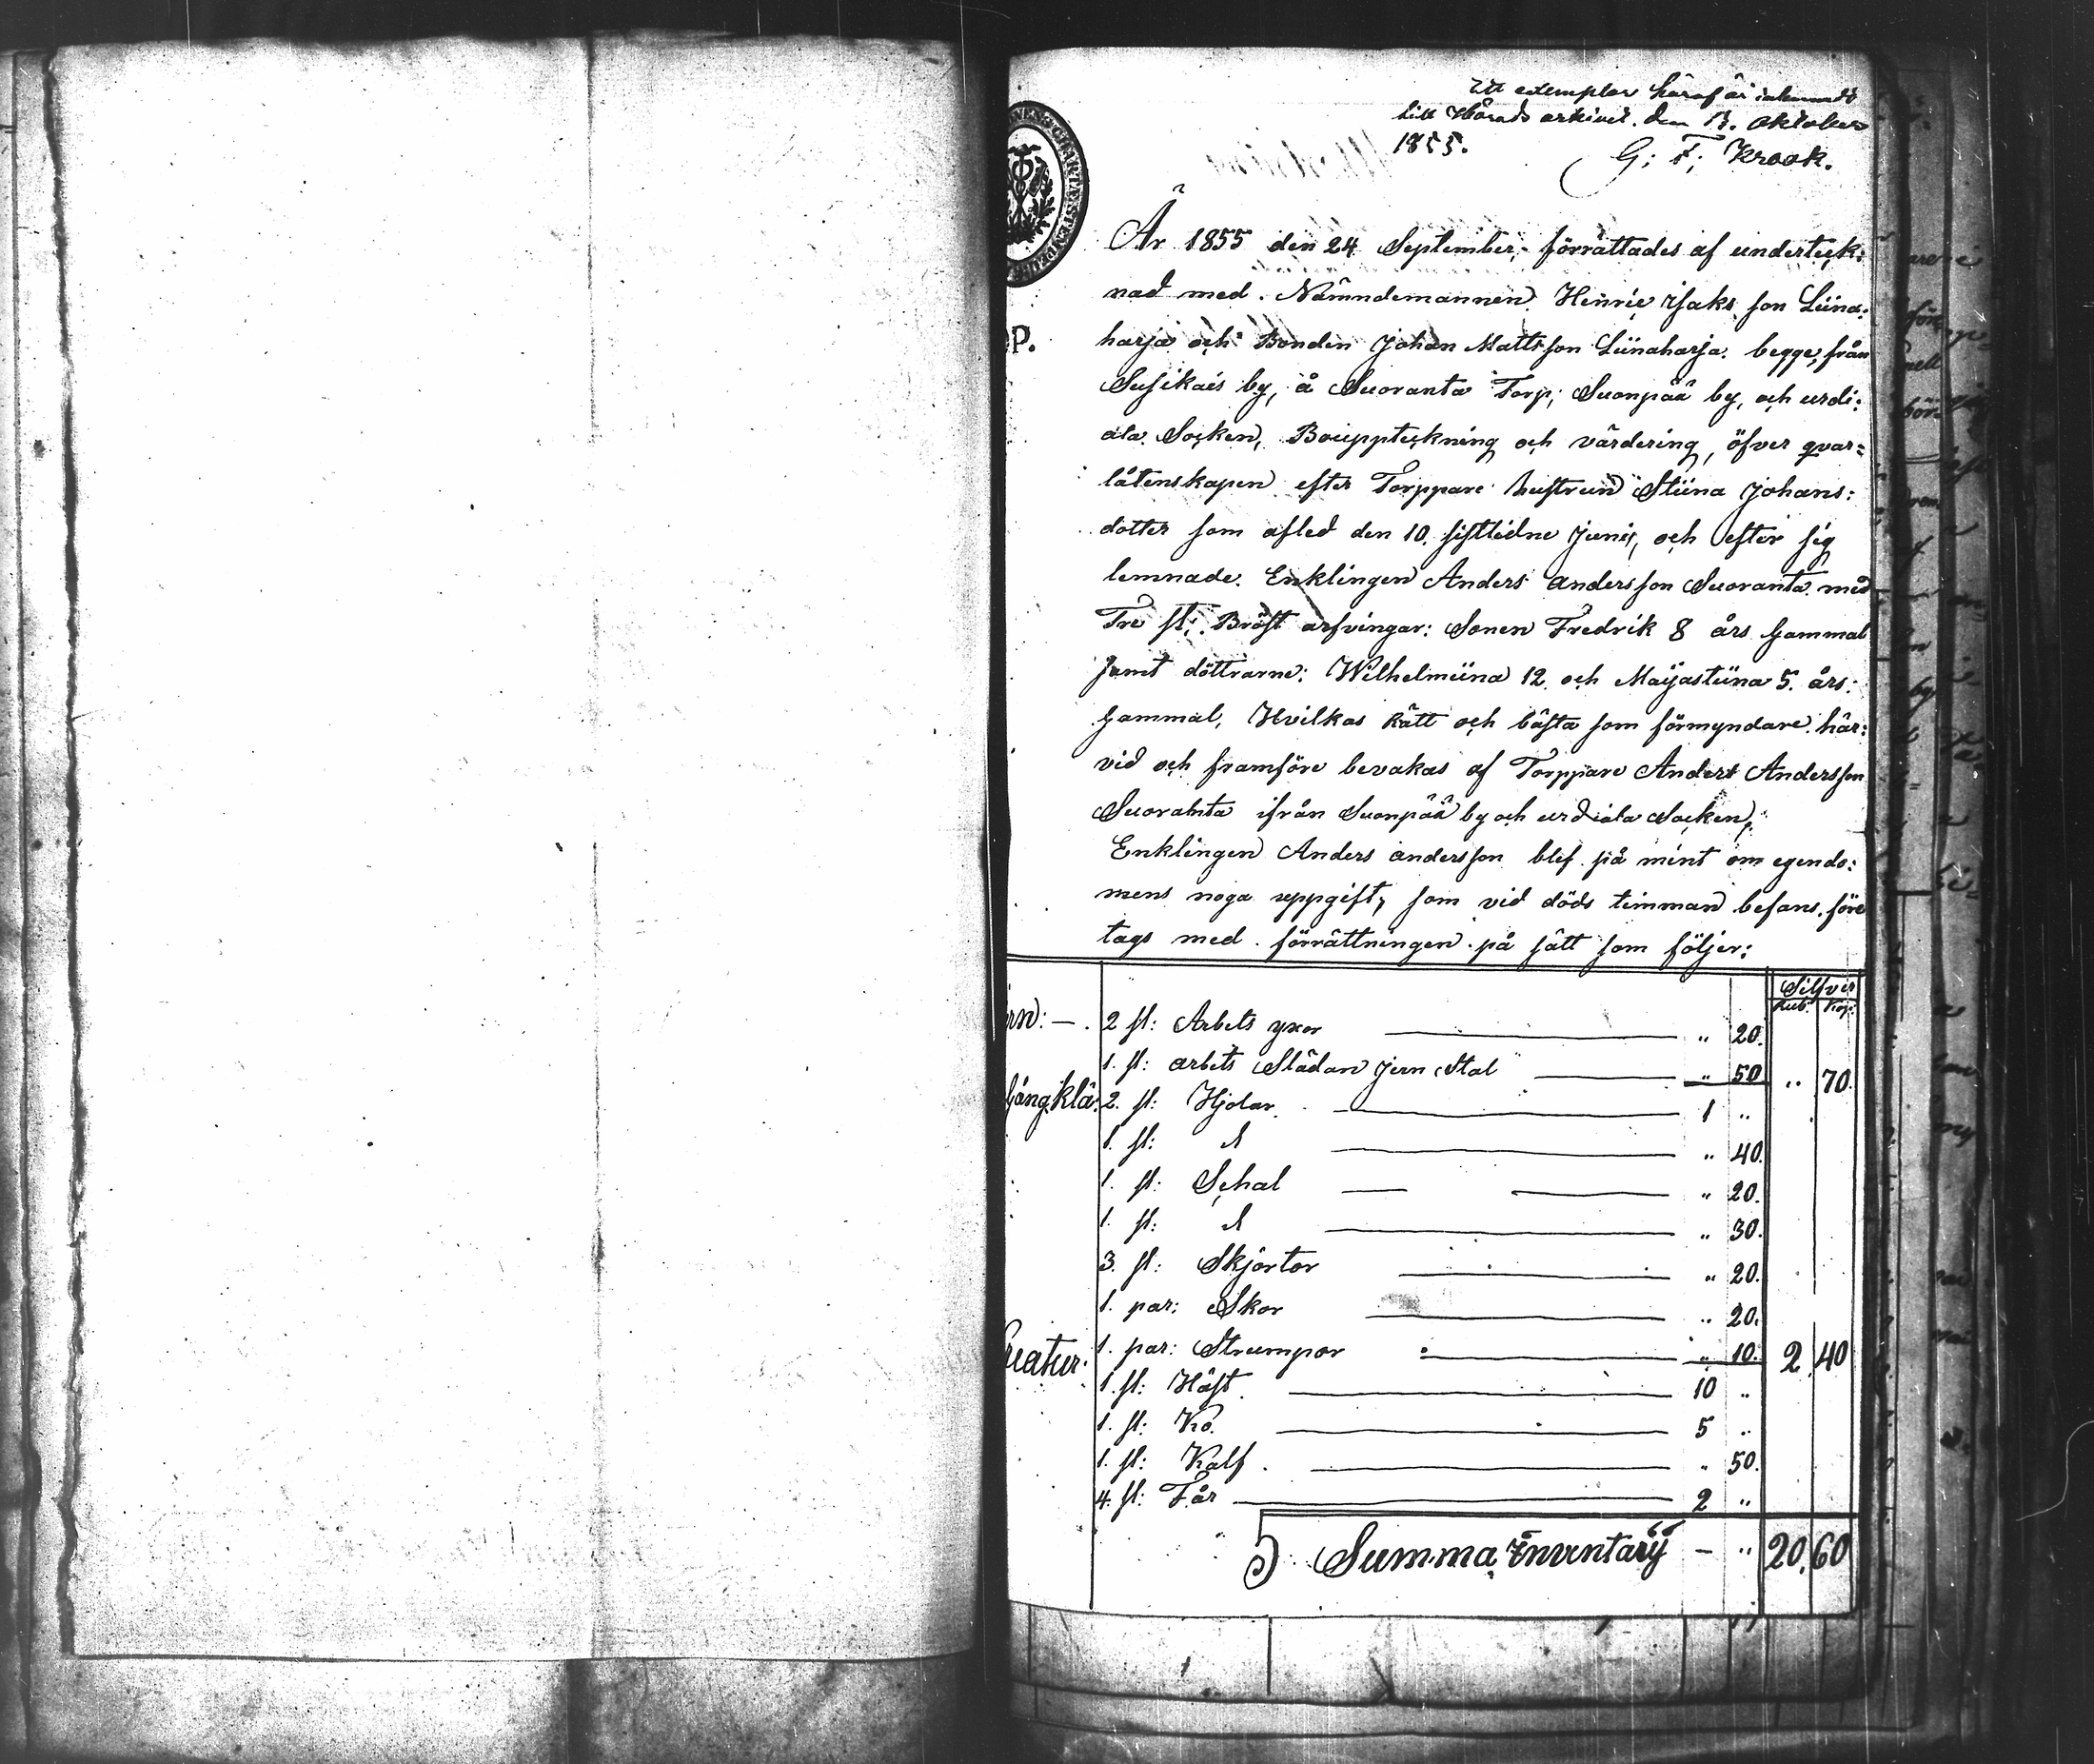 Ett exemplar häraf är inlemnadt
till Härads arkivet. den 13. Oktober
1855.
G: F; Krook.
År 1855 den 24 September, förrättades af underteck:
nad med Nämndemannen Henric Isaks son Liina:
harja och Bonden Johan Matts son Liinaharja begge, från
Susikais by, å Suoranta Torp, Suonpää by, och urdi:
ala Socken, Bouppteckning och värdering, öfver qvar=
låtenskapen efter Torppare hustrun Stiina Johans:
dotter som afled den 10. sistlidne Junii, och efter sig
lemnade. Enklingen Anders anders son Suoranta med
Tre st; Bröst arfvingar: Sonen Fredrik 8 års gammal
samt döttrarne: Wilhelmiina 12 och Maijastiina 5. års:
gammal, Hvilkas Rätt och bästa som förmyndare här:
vid och framföre bevakas af Torppare Anders Andersson
Suoranta ifrån Suonpää by och urdiala Socken,
Enklingen Anders andersson blef på mint om egendo:
mens noga uppgift, som vid döds timman befans, före
tags med förrättningen på sätt som följer:
Silfver
Rub. Kop.
rn: — . 2 st: Arbets yxor " 20.
1. st: arbets Slädan Jern Stal " 50 " 70.
Gång.klä: 2. st: Kjolar 1 "
1. st: d " 40.
1. st: Schal " 20.
1. st: d " 30.
3. st: Skjortor " 20.
1. par: Skor " 20.
1. par: Strumpor " 10. 2 40
reatur: 1. st: Häst 10 "
1. st: Ko. 5 "
1. st: Kalf " 50.
4. st: Får 2 "
Summa Inventarij — " 20,60